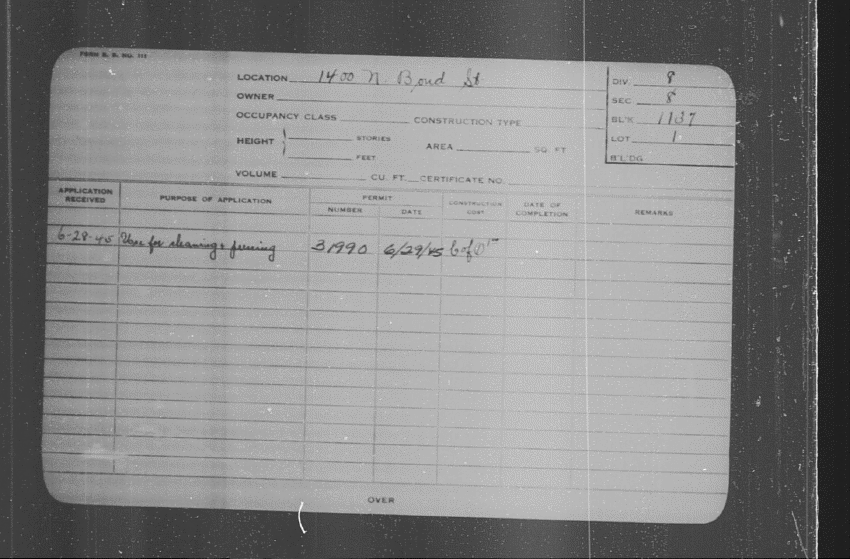 FORM B. B. NO. 111
LOCATION 1400 N. Bond St
OWNER
OCCUPANCY CLASS CONSTRUCTION TYPE
HEIGHT STORIES FEET AREA SQ. FT
VOLUME CU. FT. CERTIFICATE NO.
DIV. 8
SEC 8
BL'K 1137
LOT 1
B'LDG
APPLICATION RECEIVED PURPOSE OF APPLICATION PERMIT NUMBER DATE CONSTRUCTION COST DATE OF COMPLETION REMARKS
6-28-45 Use for cleaning + pressing 31990 6/29/45 C of O
OVER